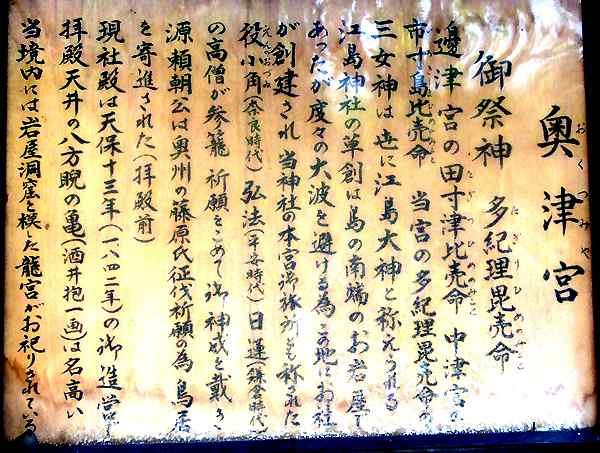 奥津宮
おくつみや
御祭神 多紀理毘売命
たぎりひめのみこと
邊津宮の田寸津比売命 中津宮の
たぎつひめのみこと
市寸島比売命 当宮の多紀理毘売命の
三女神は世に江島大神と称えられる
江島神社の草創は島の南端のお岩屋で
あったが度々の大波を避ける為この地にお社
が創建され当神社の本宮御旅所とも称された
えんのおづぬ
役小角(奈良時代) 弘法(平安時代) 日蓮(鎌倉時代)
の高僧が参籠祈願をこめて御神威を戴き
源頼朝公は奥州の藤原氏征伐祈願の為鳥居
を寄進された(拝殿前)
現社殿は天保十三年(一八四二年)の御造営で
拝殿天井の八方睨の亀(酒井抱一画)は名高い
当境内には岩屋洞窟を模した龍宮がお祀りされている